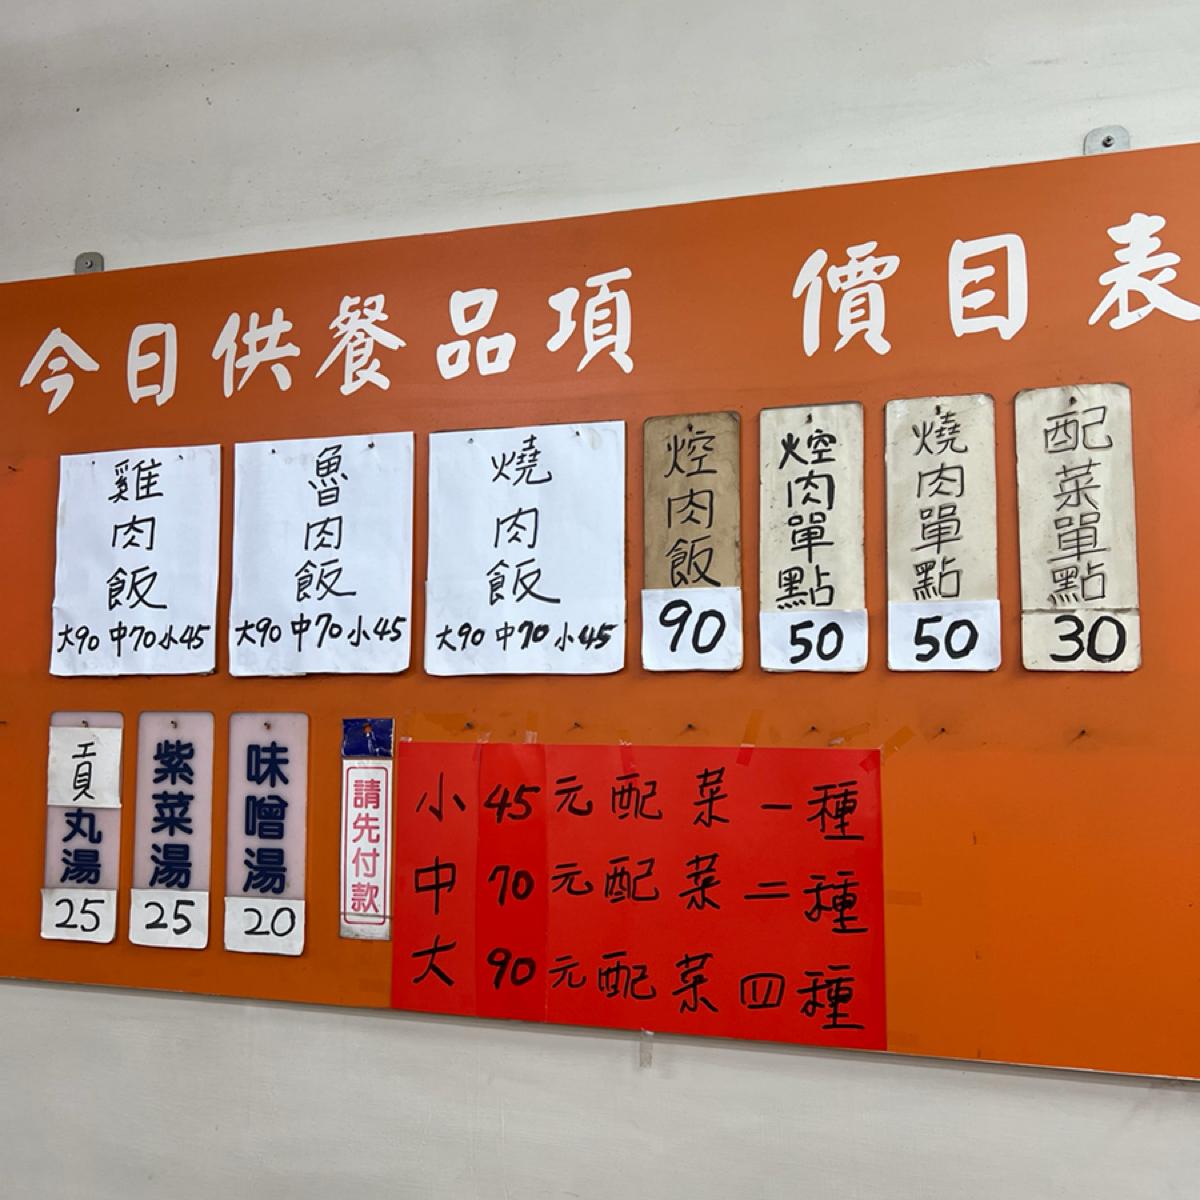 今日供餐品項 價目表
雞肉飯
大90 中70 小45
魯肉飯
大90 中70 小45
燒肉飯
大90 中70 小45
焢肉飯
90
焢肉單點
50
燒肉單點
50
配菜單點
30
貢丸湯
25
紫菜湯
25
味噌湯
20
請先付款
小 45 元配菜一種
中 70 元配菜二種
大 90 元配菜四種